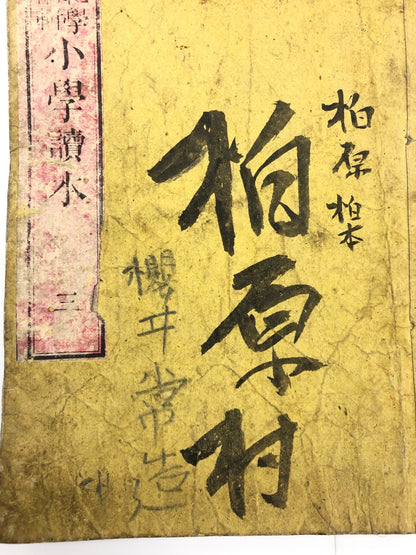 柏原 柏本
柏原村
櫻井常造
小學讀本 三